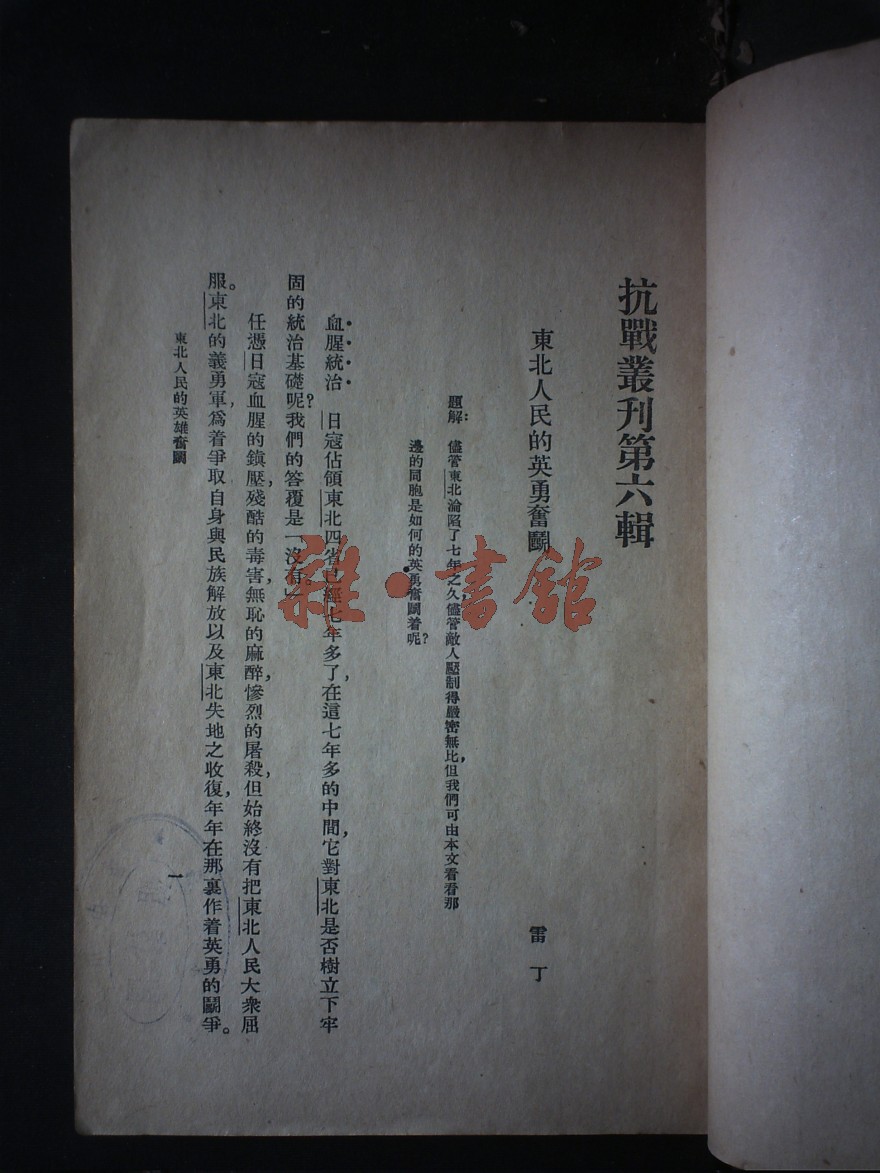 抗戰叢刊第六輯
東北人民的英勇奮鬭
雷丁
題解：儘管東北淪陷了七年之久儘管敵人壓制得嚴密無比，但我們可由本文看看那
邊的同胞是如何的英勇奮鬭着呢？
血腥統治　日寇佔領東北四省已經七年多了，在這七年多的中間，它對東北是否樹立下牢
固的統治基礎呢？我們的答覆是「沒有」。
任憑日寇血腥的鎮壓，殘酷的毒害，無恥的麻醉，慘烈的屠殺，但始終沒有把東北人民大衆屈
服。東北的義勇軍，爲着爭取自身與民族解放以及東北失地之收復，年年在那裏作着英勇的鬭爭。
東北人民的英雄奮鬭
一
雜·書館